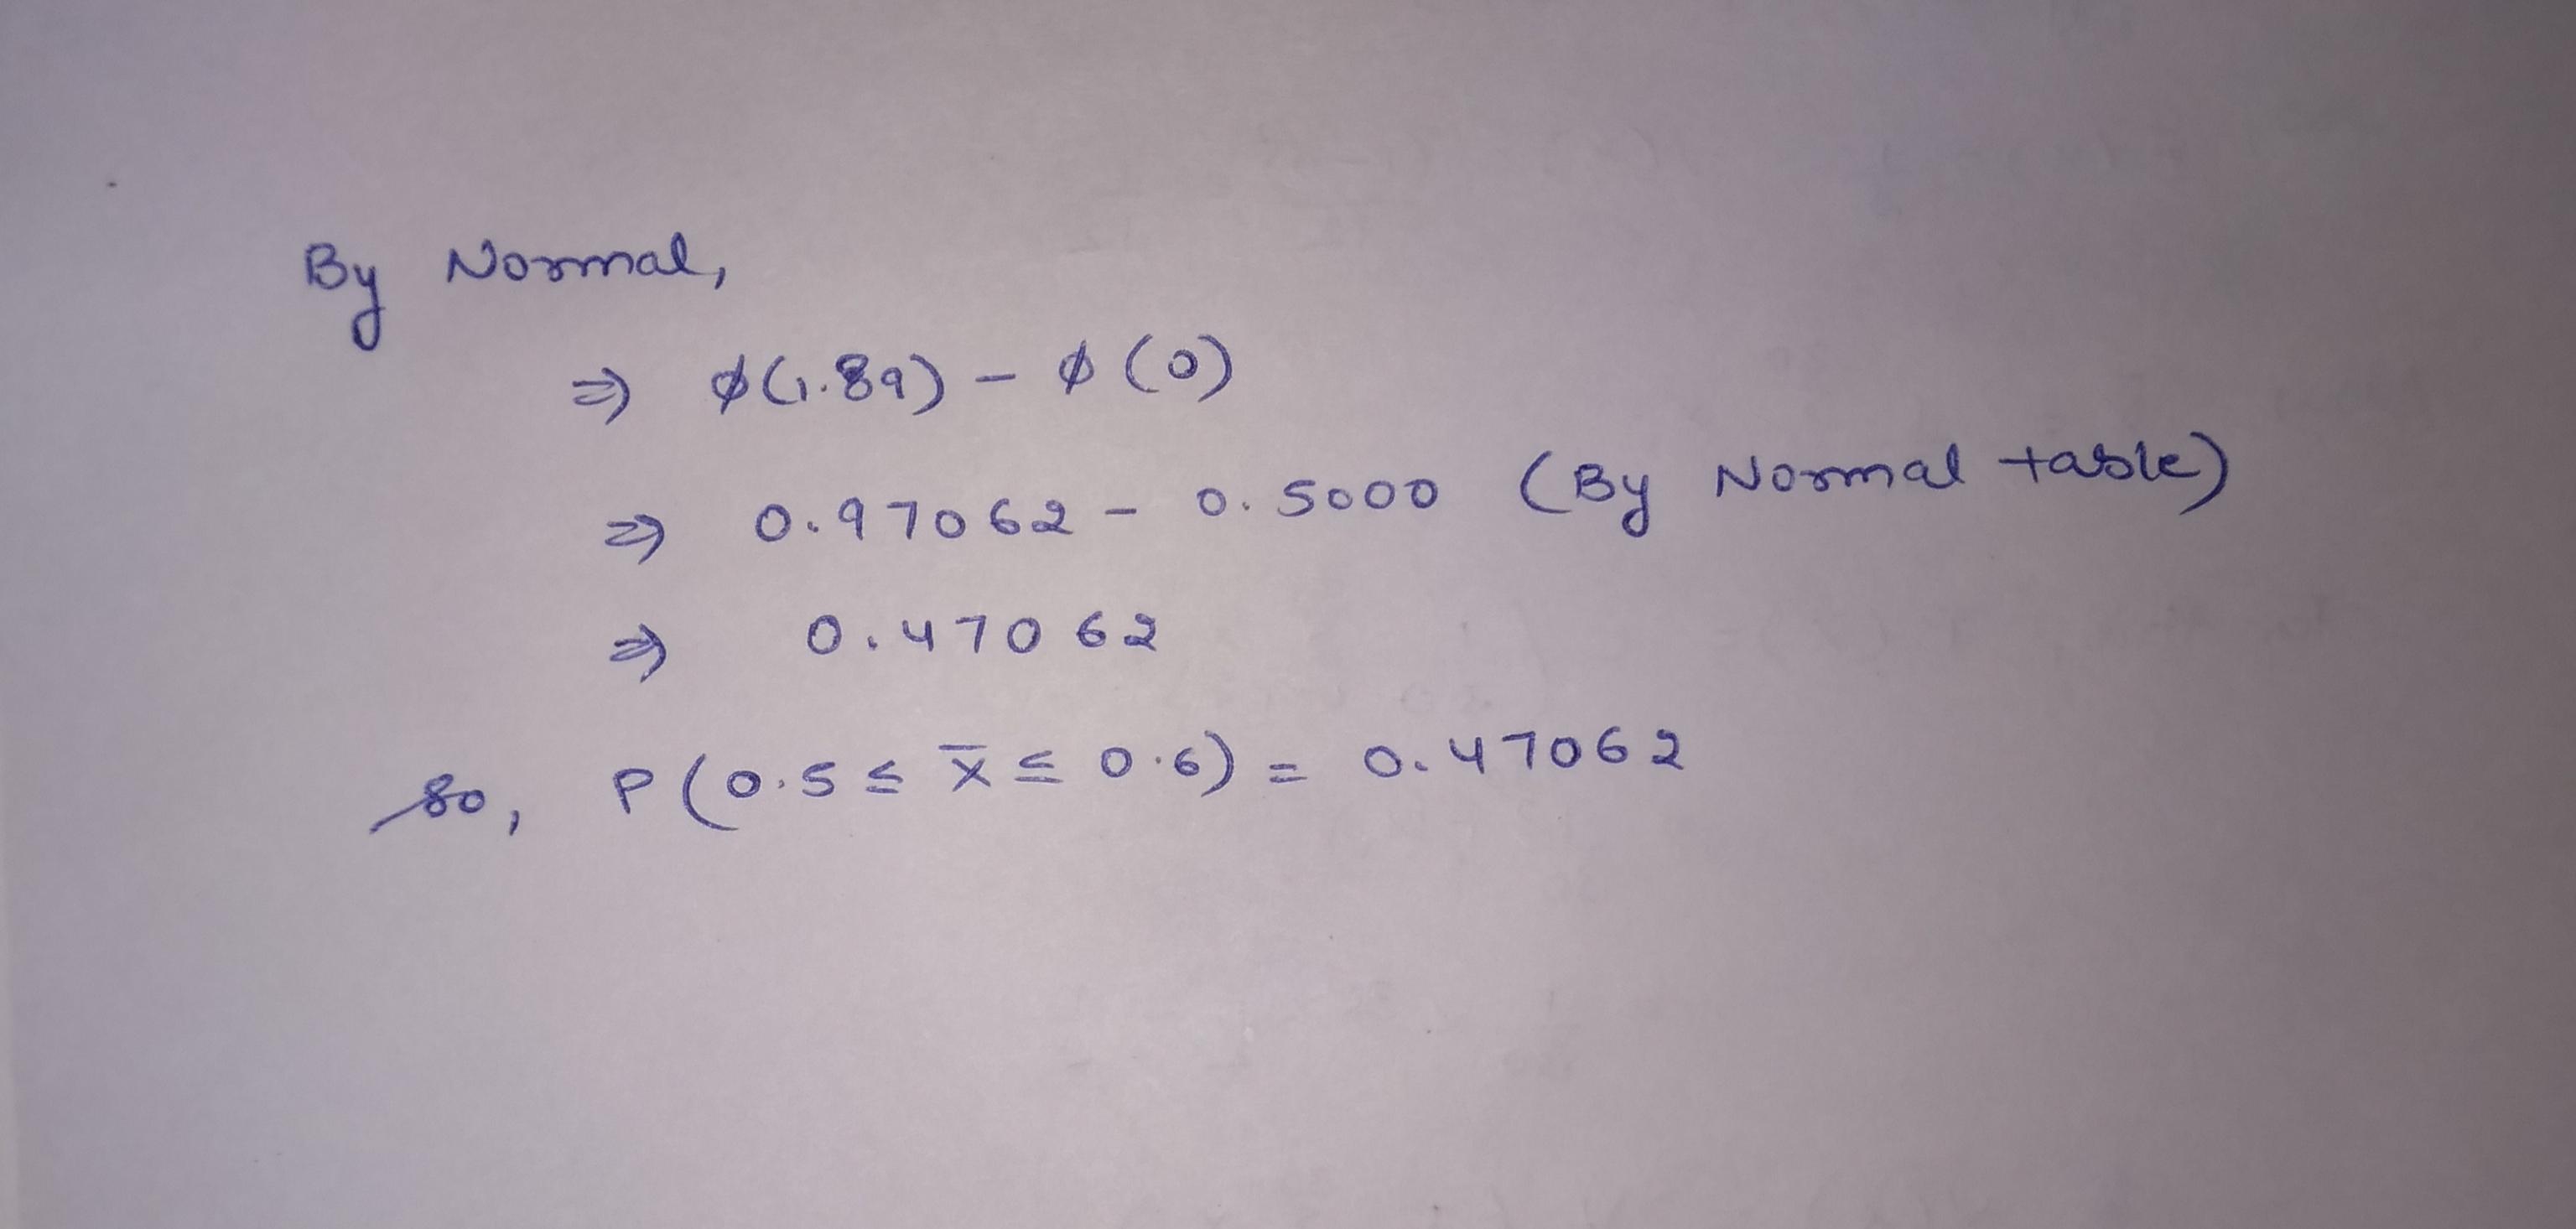 By Normal,
⇒ φ(1.89) - φ(0)
⇒ 0.97062 - 0.5000 (By Normal table)
⇒ 0.47062
so, P(0.5 ≤ x̄ ≤ 0.6) = 0.47062